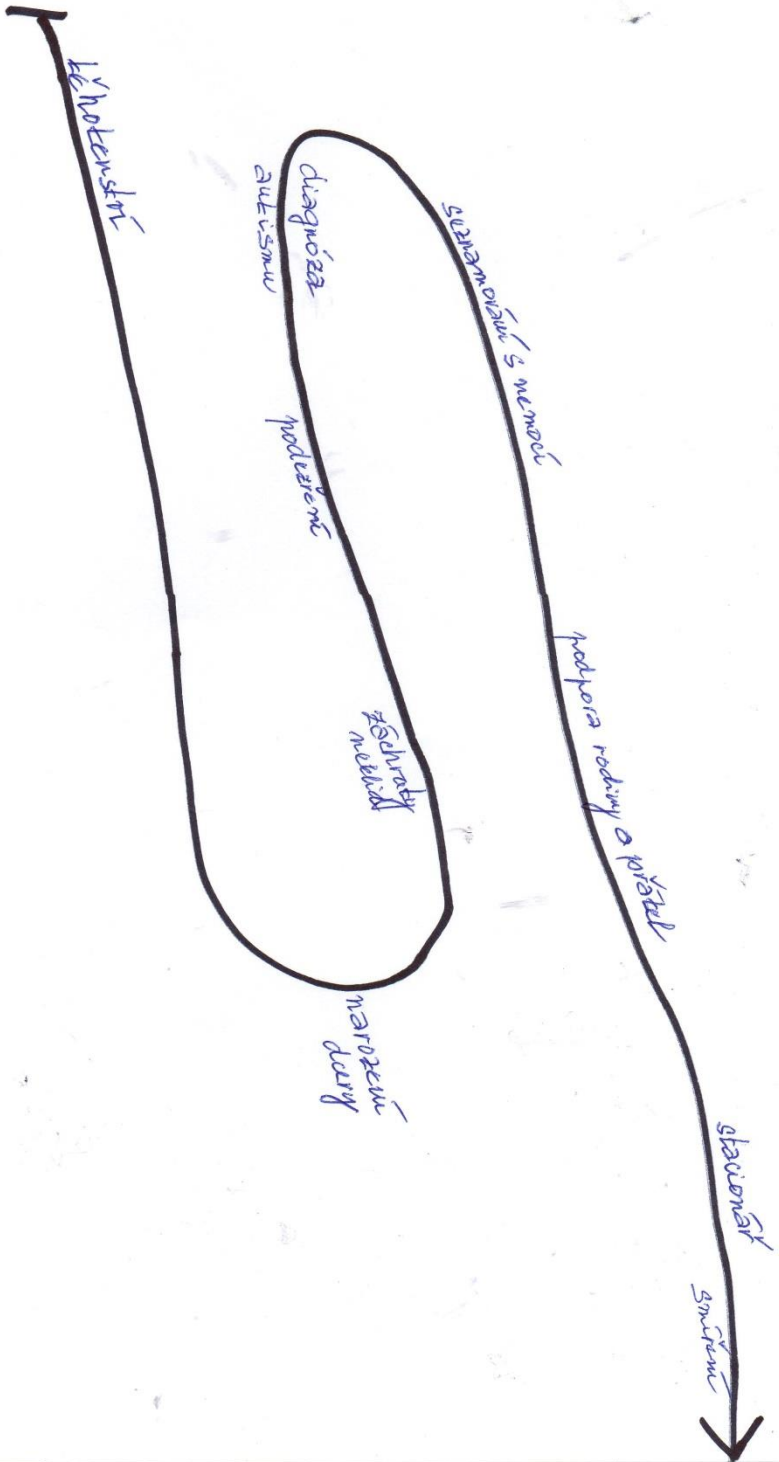 těhotenství
narození
dcery
záchvaty
neklid
podezření
diagnóza
autismu
seznamování s nemocí
podpora rodiny a přátel
stacionář
smíření